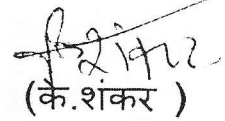 (कै.शंकर )